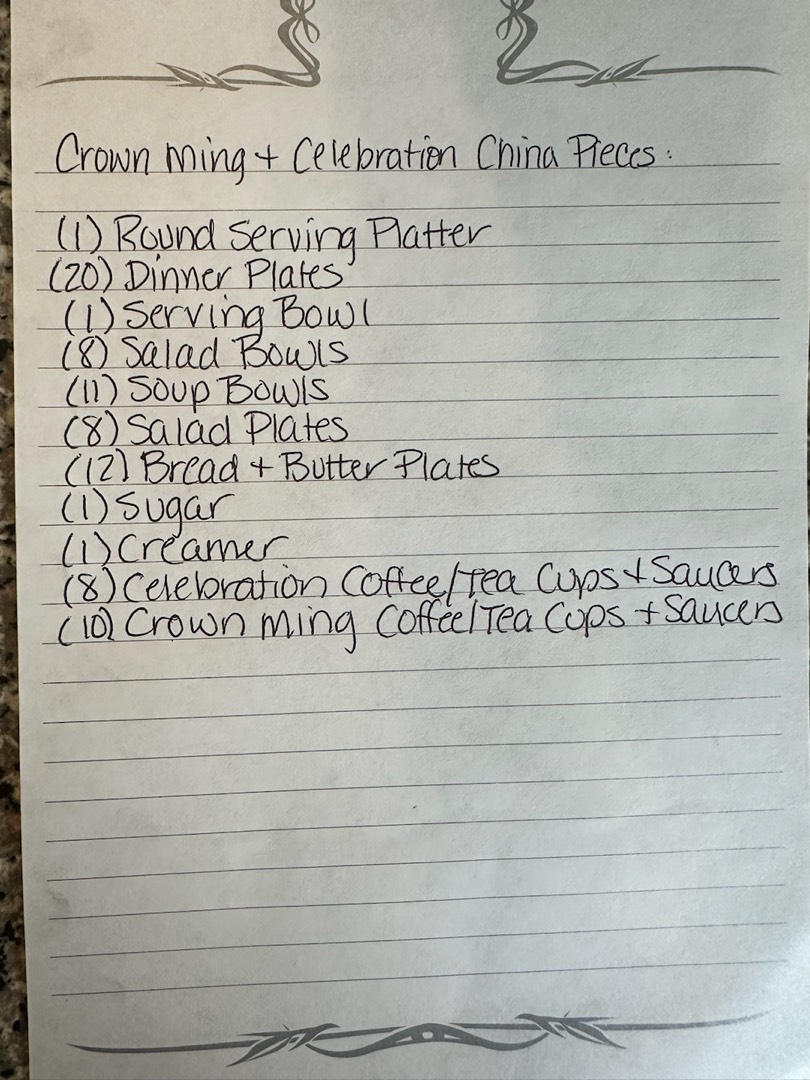 Crown Ming + Celebration China Pieces:
(1) Round Serving Platter
(20) Dinner Plates
(1) Serving Bowl
(8) Salad Bowls
(11) Soup Bowls
(8) Salad Plates
(12) Bread + Butter Plates
(1) Sugar
(1) Creamer
(8) Celebration Coffee/Tea Cups + Saucers
(10) Crown Ming Coffee/Tea Cups + Saucers